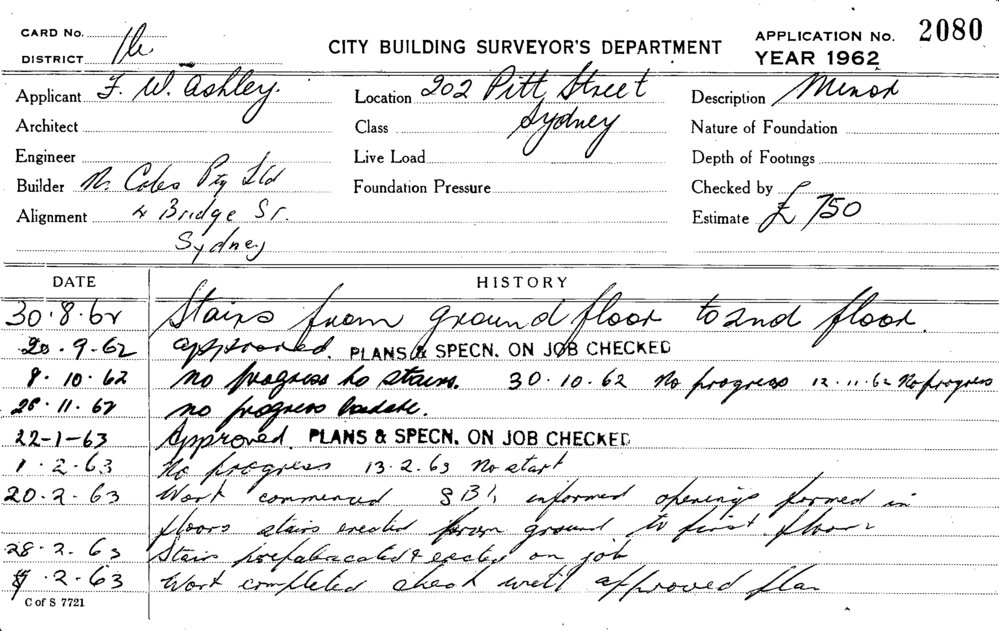 CARD No.
DISTRICT
CITY BUILDING SURVEYOR'S DEPARTMENT
APPLICATION No. 2080
YEAR 1962
Applicant F. W. Ashley.
Location 202 Pitt Street
Sydney
Description Minor
Architect
Class
Nature of Foundation
Engineer
Live Load
Depth of Footings
Builder R. Coles Pty Ltd
Foundation Pressure
Checked by
Alignment 4 Bridge St.
Sydney
Estimate £ 750
DATE HISTORY
30.8.62 Stairs from ground floor to 2nd floor.
20.9.62 approved. PLANS & SPECN. ON JOB CHECKED
8.10.62 no progress to stairs. 30.10.62 No progress 12.11.62 No progress
28.11.62 no progress to date.
22-1-63 Approved PLANS & SPECN. ON JOB CHECKED
1.2.63 No progress 13.2.63 No start
20.2.63 Work commenced informed openings formed in
floors stairs erected from ground to first floor
28.2.63 Stair prefabricated & erected on job
.2.63 Work completed check with approved plan
C of S 7721